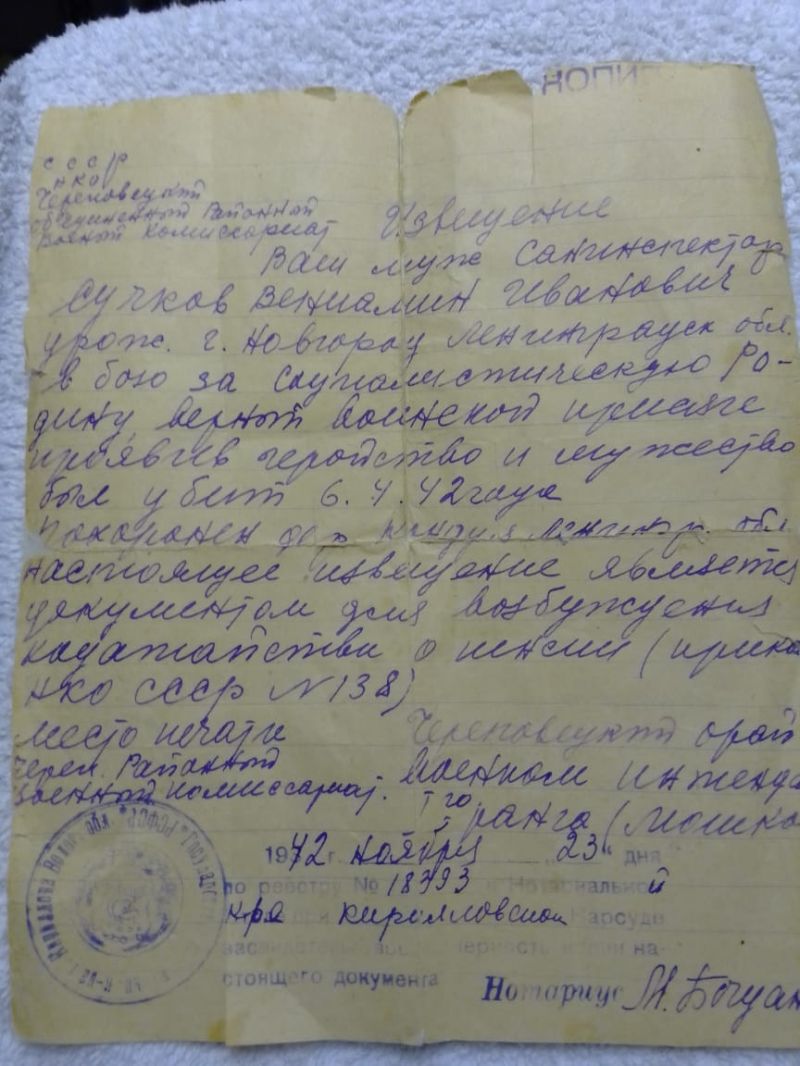 КОПИ
СССР
НКО
Череповецкий
объединенный Районный
Военный Комиссариат
Извещение
Ваш муж Санинспектор
Сучков Вениамин Иванович
урож. г. Новгород Ленинградск обл.
в бою за социалистическую Ро-
дину верный воинской присяге
проявив геройство и мужество
был убит 6.4.42 года
Похоронен дер Ленингр. обл
настоящее извещение является
документом для возбуждения
ходатайства о пенсии (прика
НКО СССР N138)
Место печати
Череп. Районный
Военный Комиссариат.
Череповецкий орай
Военком интенда
1 го ранга (Мошко
1942 г. ноября "23" дня
по реестру № 18393 в Нотариальной
Кирилловском Нарсуде
засвидетель верность копии на-
стоящего документа
Нотариус М. Богдан